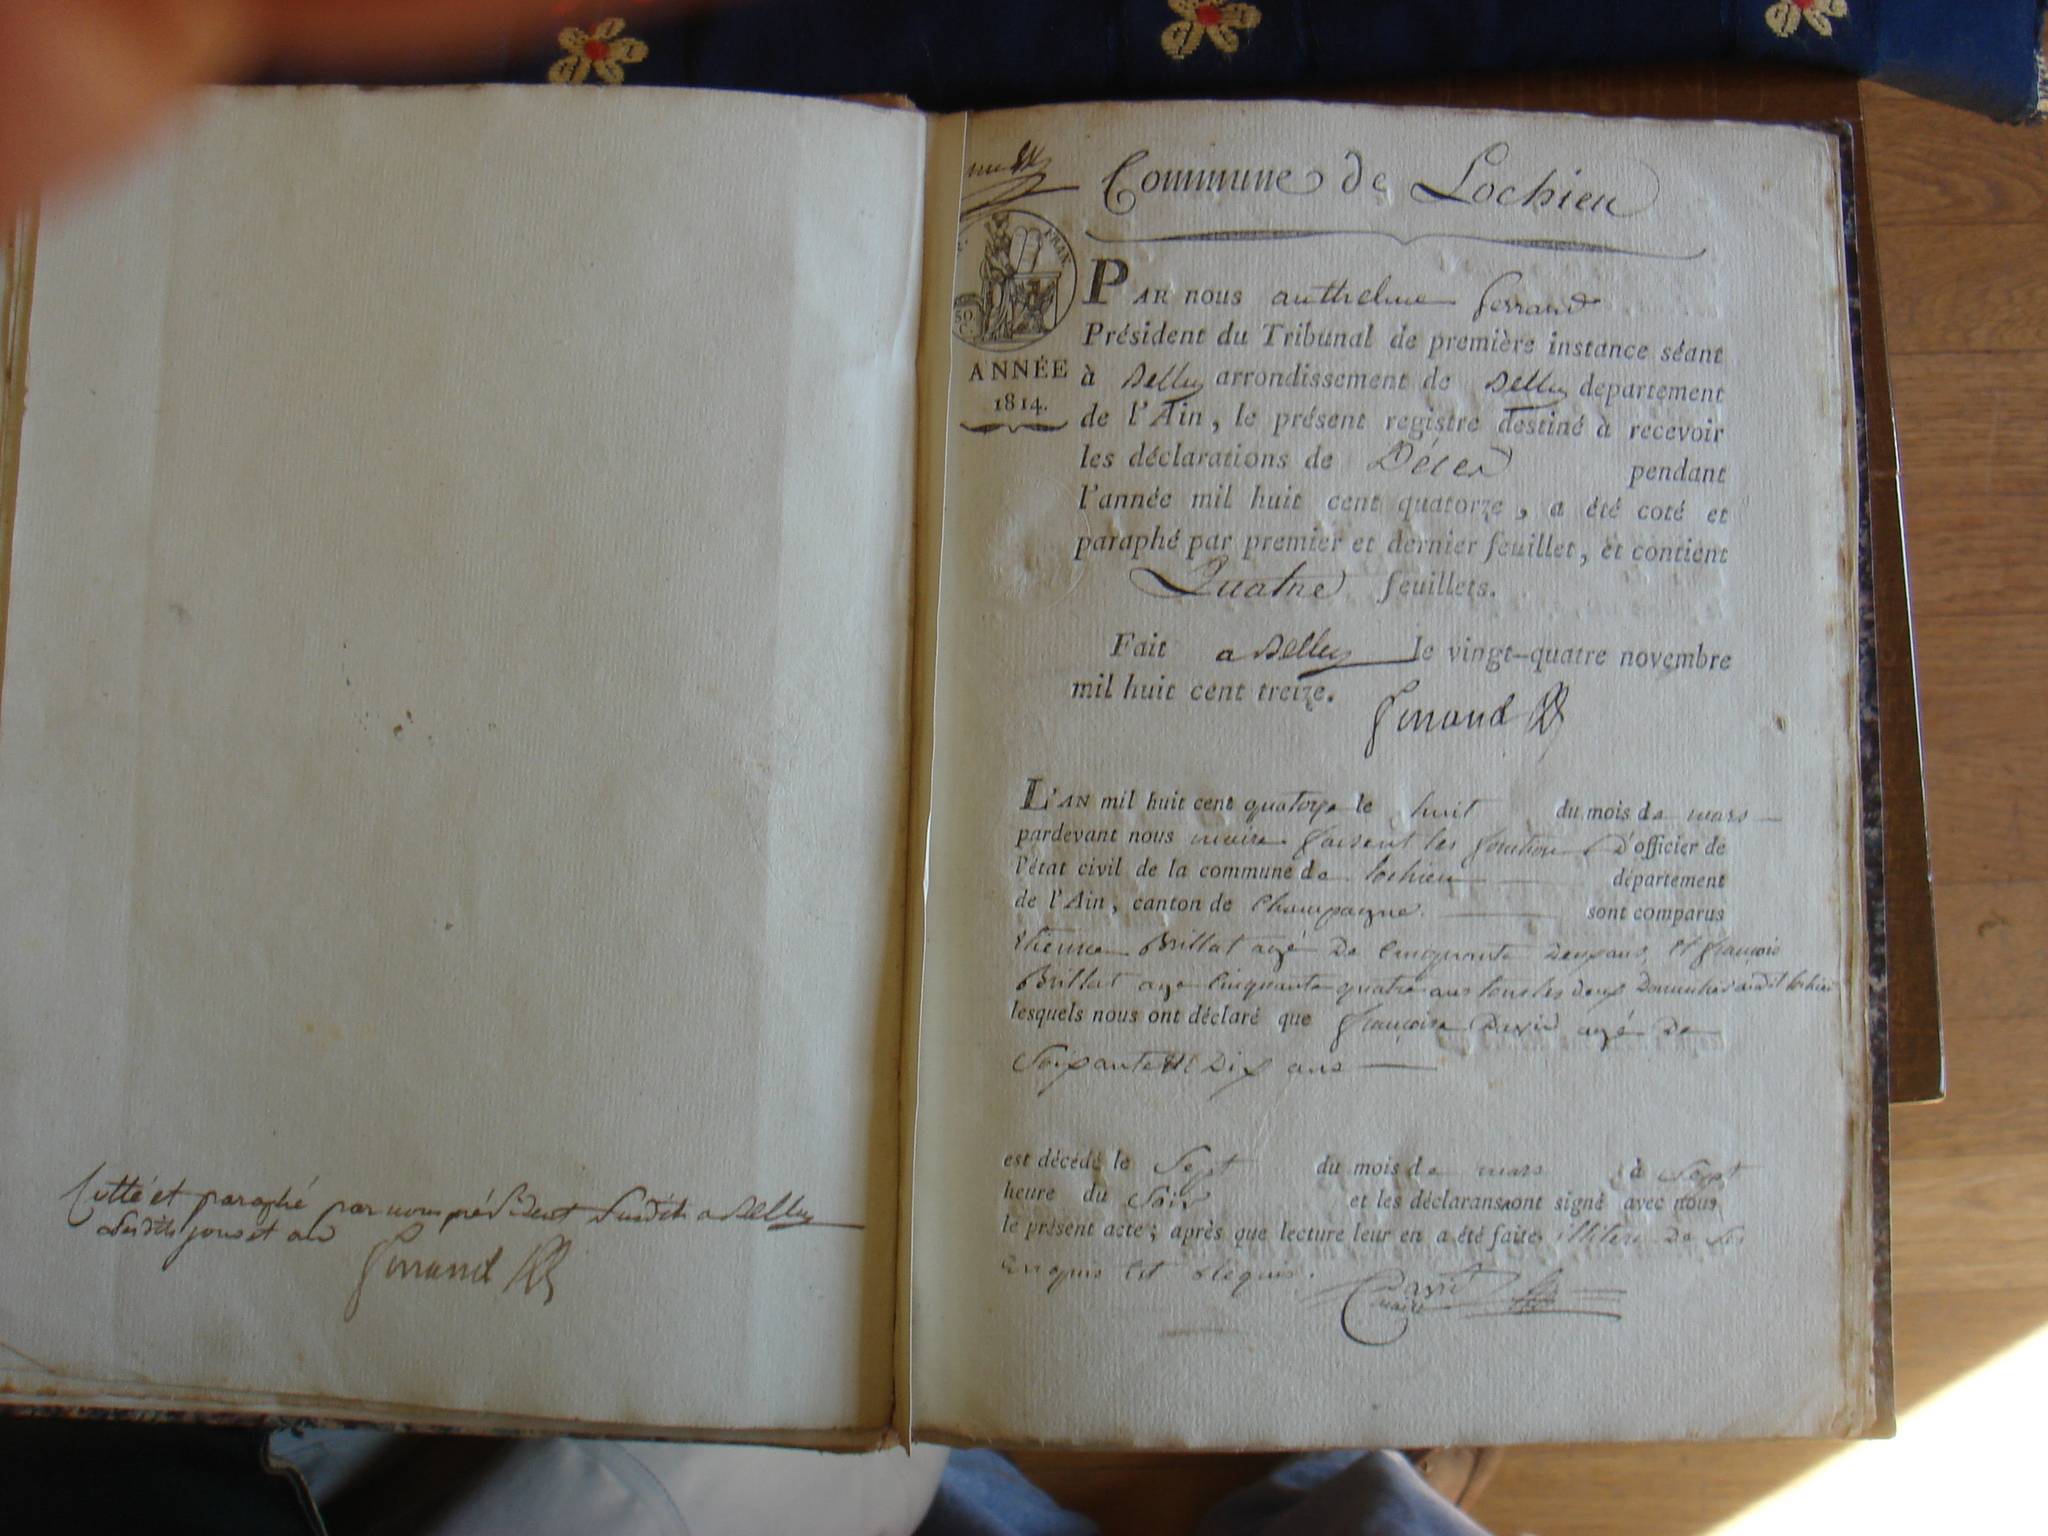 Cotté et paraphé par nous président susdit a Belley
lesdits jour et an
Ferrand
Commune de Lochieu
FRAN.
50.
C.
ANNÉE
1814.
PAR nous anthelme ferrand
Président du Tribunal de première instance séant
à Belley arrondissement de Belley departement
de l'Ain, le présent registre destiné à recevoir
les déclarations de Décès pendant
l'année mil huit cent quatorze, a été coté et
paraphé par premier et dernier feuillet, et contient
Quatre feuillets.
Fait a Belley le vingt-quatre novembre
mil huit cent treize.
Ferrand
L'AN mil huit cent quatorze le huit du mois de mars
pardevant nous maire faisent les fonction d'officier de
l'état civil de la commune de lochieu département
de l'Ain, canton de Champagne. sont comparus
Etienne Brillat agé de Cinquante Deux ans, et françois
Brillat age Cinquante quatre ans tous les deux Domiciliés audit lochieu
lesquels nous ont déclaré que françoise David agé de
Soixante et Dix ans
est décédé le Sept du mois de mars à Sept
heure du Soir et les déclarans ont signé avec nous
le présent acte; après que lecture leur en a été faite illiteré de ce
Enquis et Requis.
David
maire